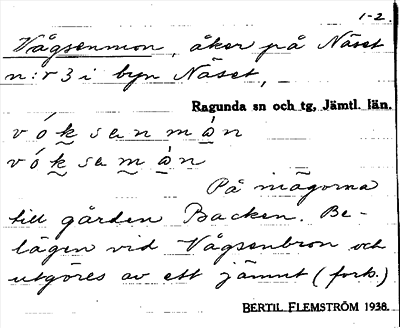 1-2.
Vågsenmon, åker på Näset
n:r 3 i byn Näset,
Ragunda sn och tg, Jämtl. län.
v ó k s a n m à n
v ó k s a m à n
På mägorna
till gården Backen. Be-
lägen vid Vågsenbron och
utgöres av ett jämnt (forts.)
BERTIL FLEMSTRÖM 1938.